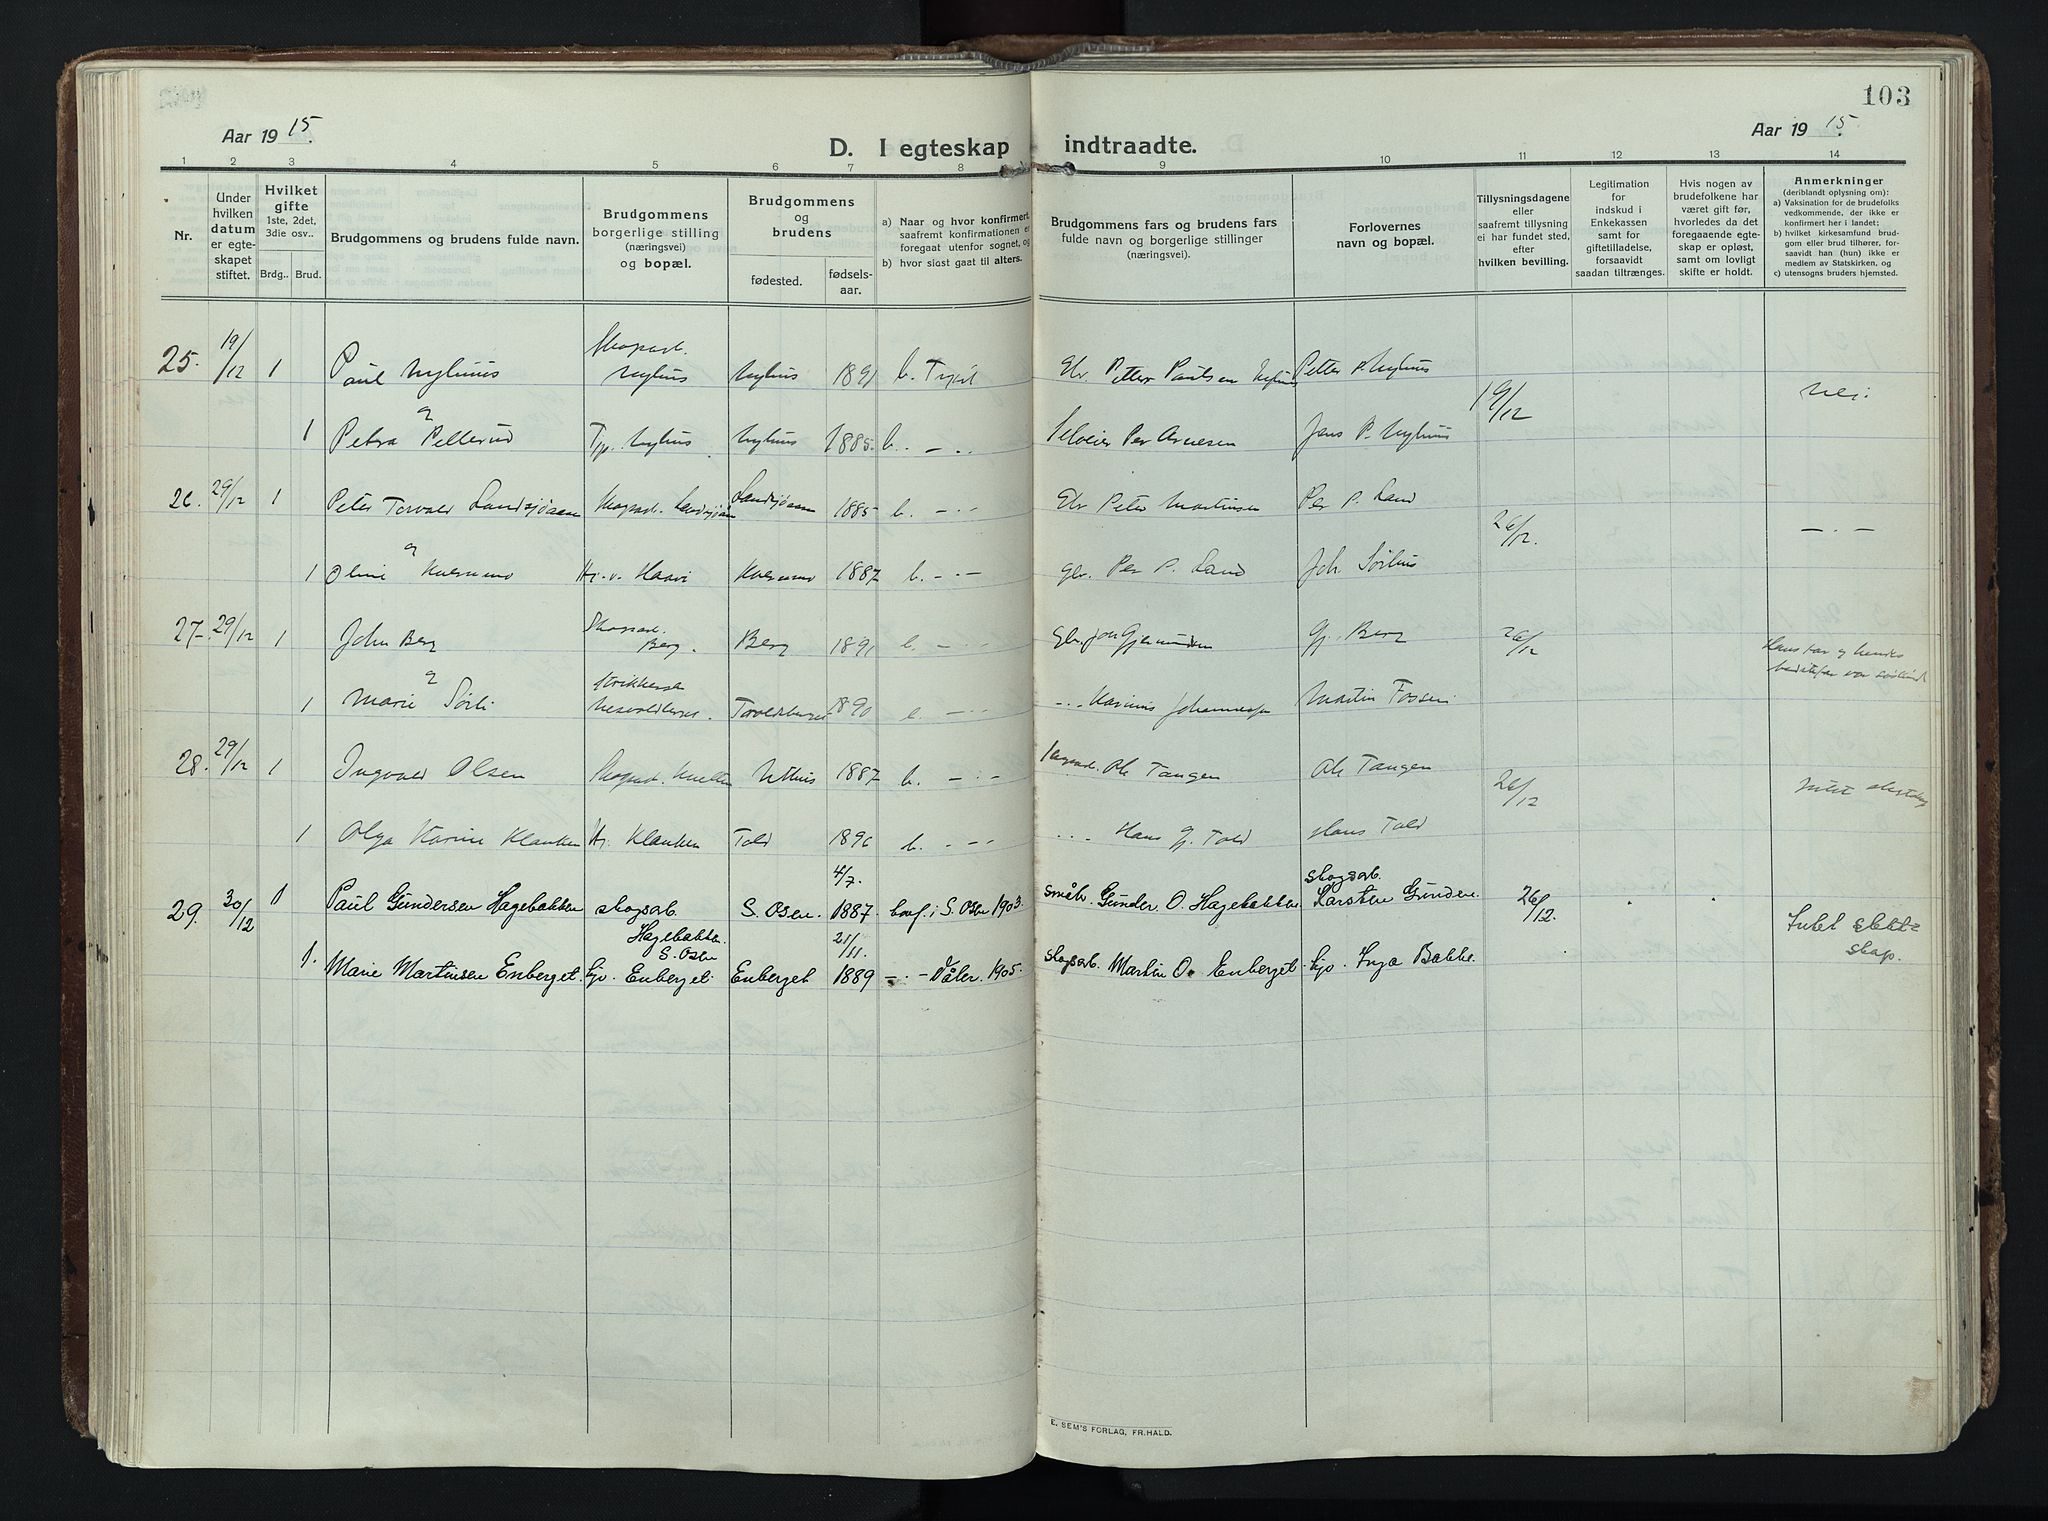 103
Aar 1915.
D. I egteskap indtraadte.
Aar 1915.
1 2 3 4 5 6 7 8 9 10 11 12 13 14
Nr.
Under hvilken datum er egteskapet stiftet.
Hvilket gifte 1ste, 2det, 3die osv..
Brdg.. Brud.
Brudgommens og brudens fulde navn.
Brudgommens borgerlige stilling (næringsvei) og bopæl.
Brudgommens og brudens
fødested.
fødselsaar.
a) Naar og hvor konfirmert, saafremt konfirmationen er foregaat utenfor sognet, og
b) hvor sidst gaat til alters.
Brudgommens fars og brudens fars fulde navn og borgerlige stillinger (næringsvei).
Forlovernes navn og bopæl.
Tillysningsdagene eller saafremt tillysning ei har fundet sted, efter hvilken bevilling.
Legitimation for indskud i Enkekassen samt for giftetilladelse, forsaavidt saadan tiltrænges.
Hvis nogen av brudefolkene har været gift før, hvorledes da det foregaaende egteskap er opløst, samt om lovligt skifte er holdt.
Anmerkninger (deriblandt oplysning om):
a) Vaksination for de brudefolks vedkommende, der ikke er konfirmert her i landet;
b) hvilket kirkesamfund brudgom eller brud tilhører, forsaavidt han (hun) ikke er medlem av Statskirken, og
c) utensogns bruders hjemsted.
25. 19/12 1 Paul Nyhuus Skogarb. Nyhus Nyhus 1891 b. Trysil Gbr. Petter Paulsen Nyhus Petter P. Nyhus 19/12 nei.
og
1 Petra Pellerud Tj. Nyhus Nyhuus 1885 b. — Selveier Per Arnesen Jens P. Nyhuus
26. 29/12 1 Peter Torvald Landsjøaasen Skogarb. Landsjøaasen Landsjøaasen 1885 b. — Gbr Peter Martinsen Per P. Land 26/12. — . —
og
1 Oline 1887 b. — . — gbr. Per P. Land Joh. Sørhus
27. 29/12 1 John Berg Skogarb. Berg. Berg 1891 b. — Gbr. Jon Gjermundsen Gj. Berg 26/12
og
1 Marie Sørli 1890 b. — Martin Fossen
28. 29/12 1 Ingvald Olsen 1887 b. — . — Ole Tangen Ole Tangen 26/12 Intet slegtskap
1 Olga Karine Klanken Hr. Klanken Told 1896 b. . — — Hans Gj. Told Hans Told
29. 30/12 1 Paul Gundersen Hagebakken skogsarb. Hagebakken S. Osen S. Osen. 4/7. 1887. konf. i S. Osen 1903. småbr. Gunder O. Hagebakken skogsarb. Karsten Gundersen 26/12. Intet slektskap.
1. Marie Martinsen Enberget. tjp. Enberget. Enberget 21/11. 1889 — . — Våler. 1905. skogsarb. Martin O. Enberget. tjp. Inga Bakke.
E. SEM'S FORLAG, FR.HALD.